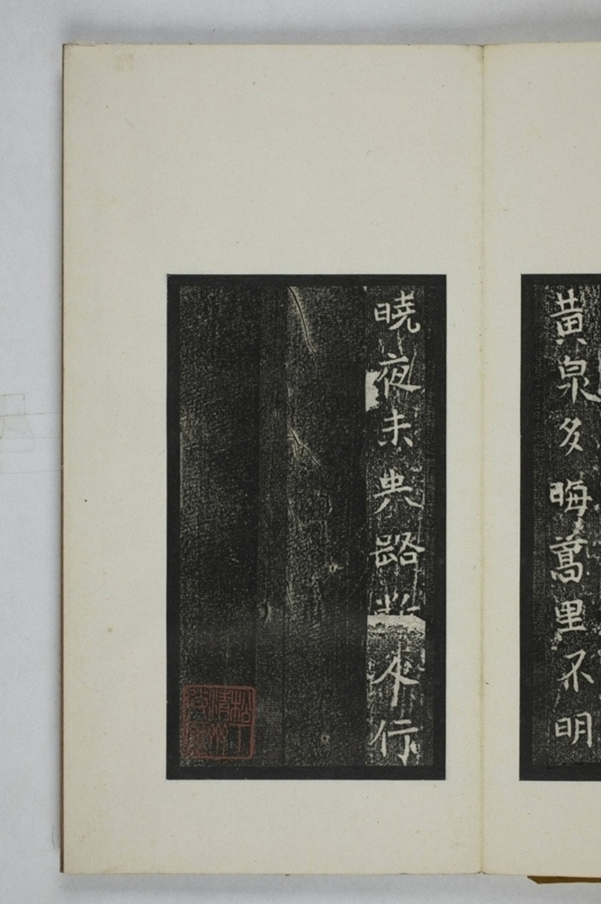 黃泉多晦蒿里不明
曉夜未央路行